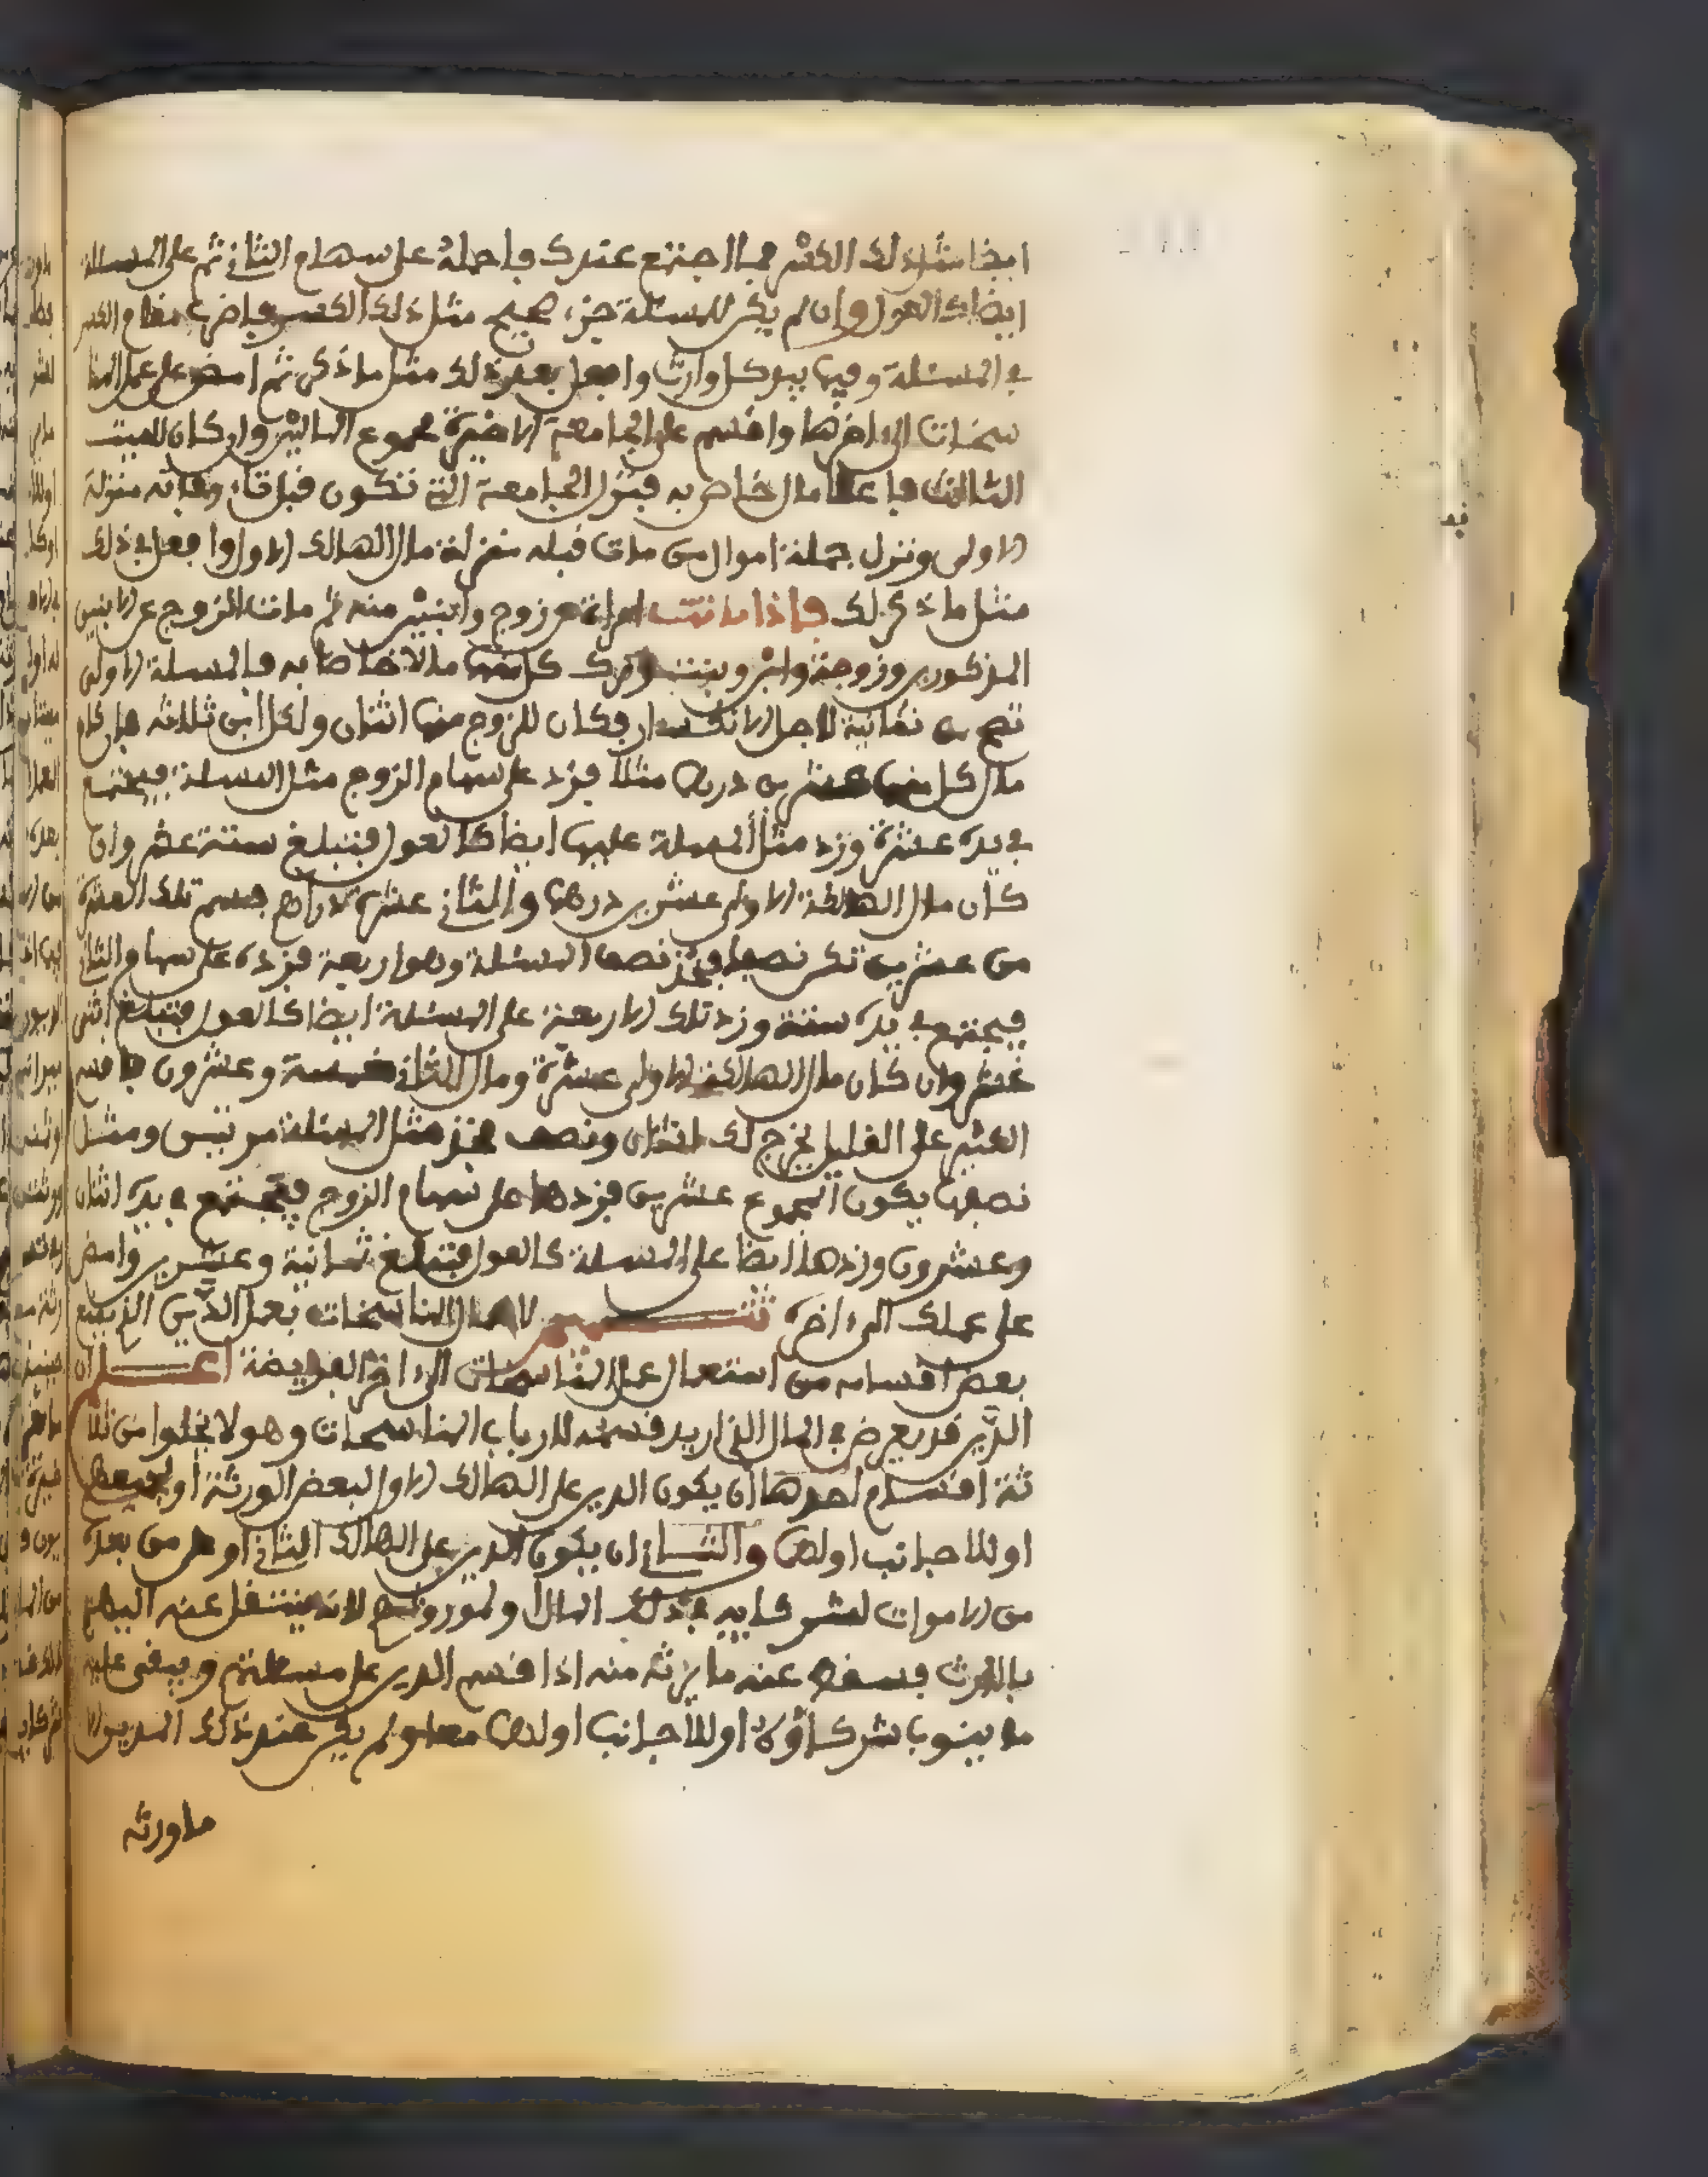 ايضا مثل ذلك الكسر فما اجتمع عندك فاحمله على سهام الثاني ثم على المسئلة
ايضا كالعول وان لم يكن للمسئلة جزء صحيح مثل ذلك الكسر فاضرب مقام الكسر
في المسئلة وفيما بيد كل وارث وافعل بعد ذلك مثل ما ذكر ثم امض على عمل المنا
سخات الى اخرها واقسم على الجامعة الاخيرة مجموع المالين وان كان للميت
الثالث فاعلا مال خاص به فنزل الجامعة التي تكون قبل وفاته منزلة
الاولى ونزل جملة اموال من مات قبله منزلة مال الهالك الاول وافعل في ذلك
مثل ما ذكر لك فاذا ماتت امراة عن زوج وابنين منه ثم مات الزوج عن الابنين
المذكورين وزوجة وابن وبنت وترك كل منهما مالا خاصا به فالمسئلة الاولى
تصح من ثمانية لاجل الانكسار فكان للزوج منها اثنان ولكل ابن ثلاثة فان كان
مال كل منهما عشرين درهما مثلا فزد على سهام الزوج مثل المسئلة فيجتمع
في يده عشرة وزد مثل المسئلة عليها ايضا كالعول فتبلغ ستة عشر وان
كان مال الهالكة الاولى عشرين درهما والثاني عشرة دراهم فسم تلك العشرة
من عشرين تكن نصفا فخذ نصف المسئلة وهو اربعة فزده على سهام الثاني
فيجتمع في يده ستة وزد تلك الاربعة على المسئلة ايضا كالعول فتبلغ اثنى
عشر وان كان مال الهالكة الاولى عشرة ومال الثاني خمسة وعشرون فاقسم
الكثير على القليل يخرج لك اثنان ونصف فخذ مثل المسئلة مرتين ومثل
نصفها يكون المجموع عشرين فزدها على سهام الزوج فيجتمع في يده اثنان
وعشرون وزدها ايضا على المسئلة كالعول فتبلغ ثمانية وعشرين وامض
على عملك الى اخره تتميم لاعمال المناسخات بعمل الدين الذي يقع
بعض اقسامه من استعمال عمل المناسخات الى اخر الفريضة اعلم ان
الدين قد يعرض في المال الذي اريد قسمته لارباب المناسخات وهو لا يخلوا من ثلا
ثة اقسام احدها ان يكون الدين على الهالك الاول لبعض الورثة او لجميعهم
او للاجانب اولهما والثاني ان يكون الدين على الهالك الثاني او على من بعده
من الاموات لشركايه في ذلك المال ولموروثهم لانه ينتقل عنه اليهم
بالارث فيسقط عنه ما يرثه منه اذا قسم الدين على مسئلتهم ويبقى عليه
ما ينوب شركاؤه او للاجانب اولهما معا ولم يكن عنده ذلك المدين الا
ما ورثه